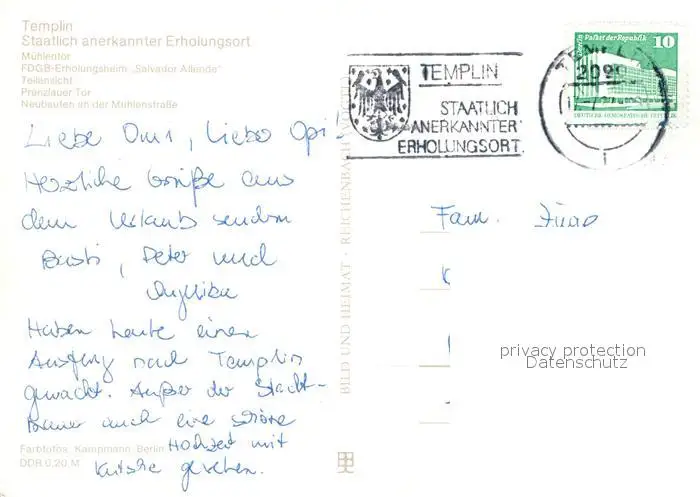 Templin
Staatlich anerkannter Erholungsort
Mühlentor
FDGB-Erholungsheim „Salvador Allende"
Teilansicht
Prenzlauer Tor
Neubauten an der Mühlenstraße
Liebe Omi, lieber Opi!
Herzliche Grüße aus
dem Urlaub senden
Peter und
Angelika
Haben heute einen
Ausflug nach Templin
gemacht. Außer der Stadt-
mauer auch eine schöne
Hochzeit mit
Kutsche gesehen.
Farbfotos: Kampmann, Berlin
DDR 0,20 M
BILD UND HEIMAT · REICHENBACH
TEMPLIN
STAATLICH
ANERKANNTER
ERHOLUNGSORT.
2090
Berlin, Palast der Republik 10
DEUTSCHE DEMOKRATISCHE REPUBLIK
Fam.
privacy protection
Datenschutz